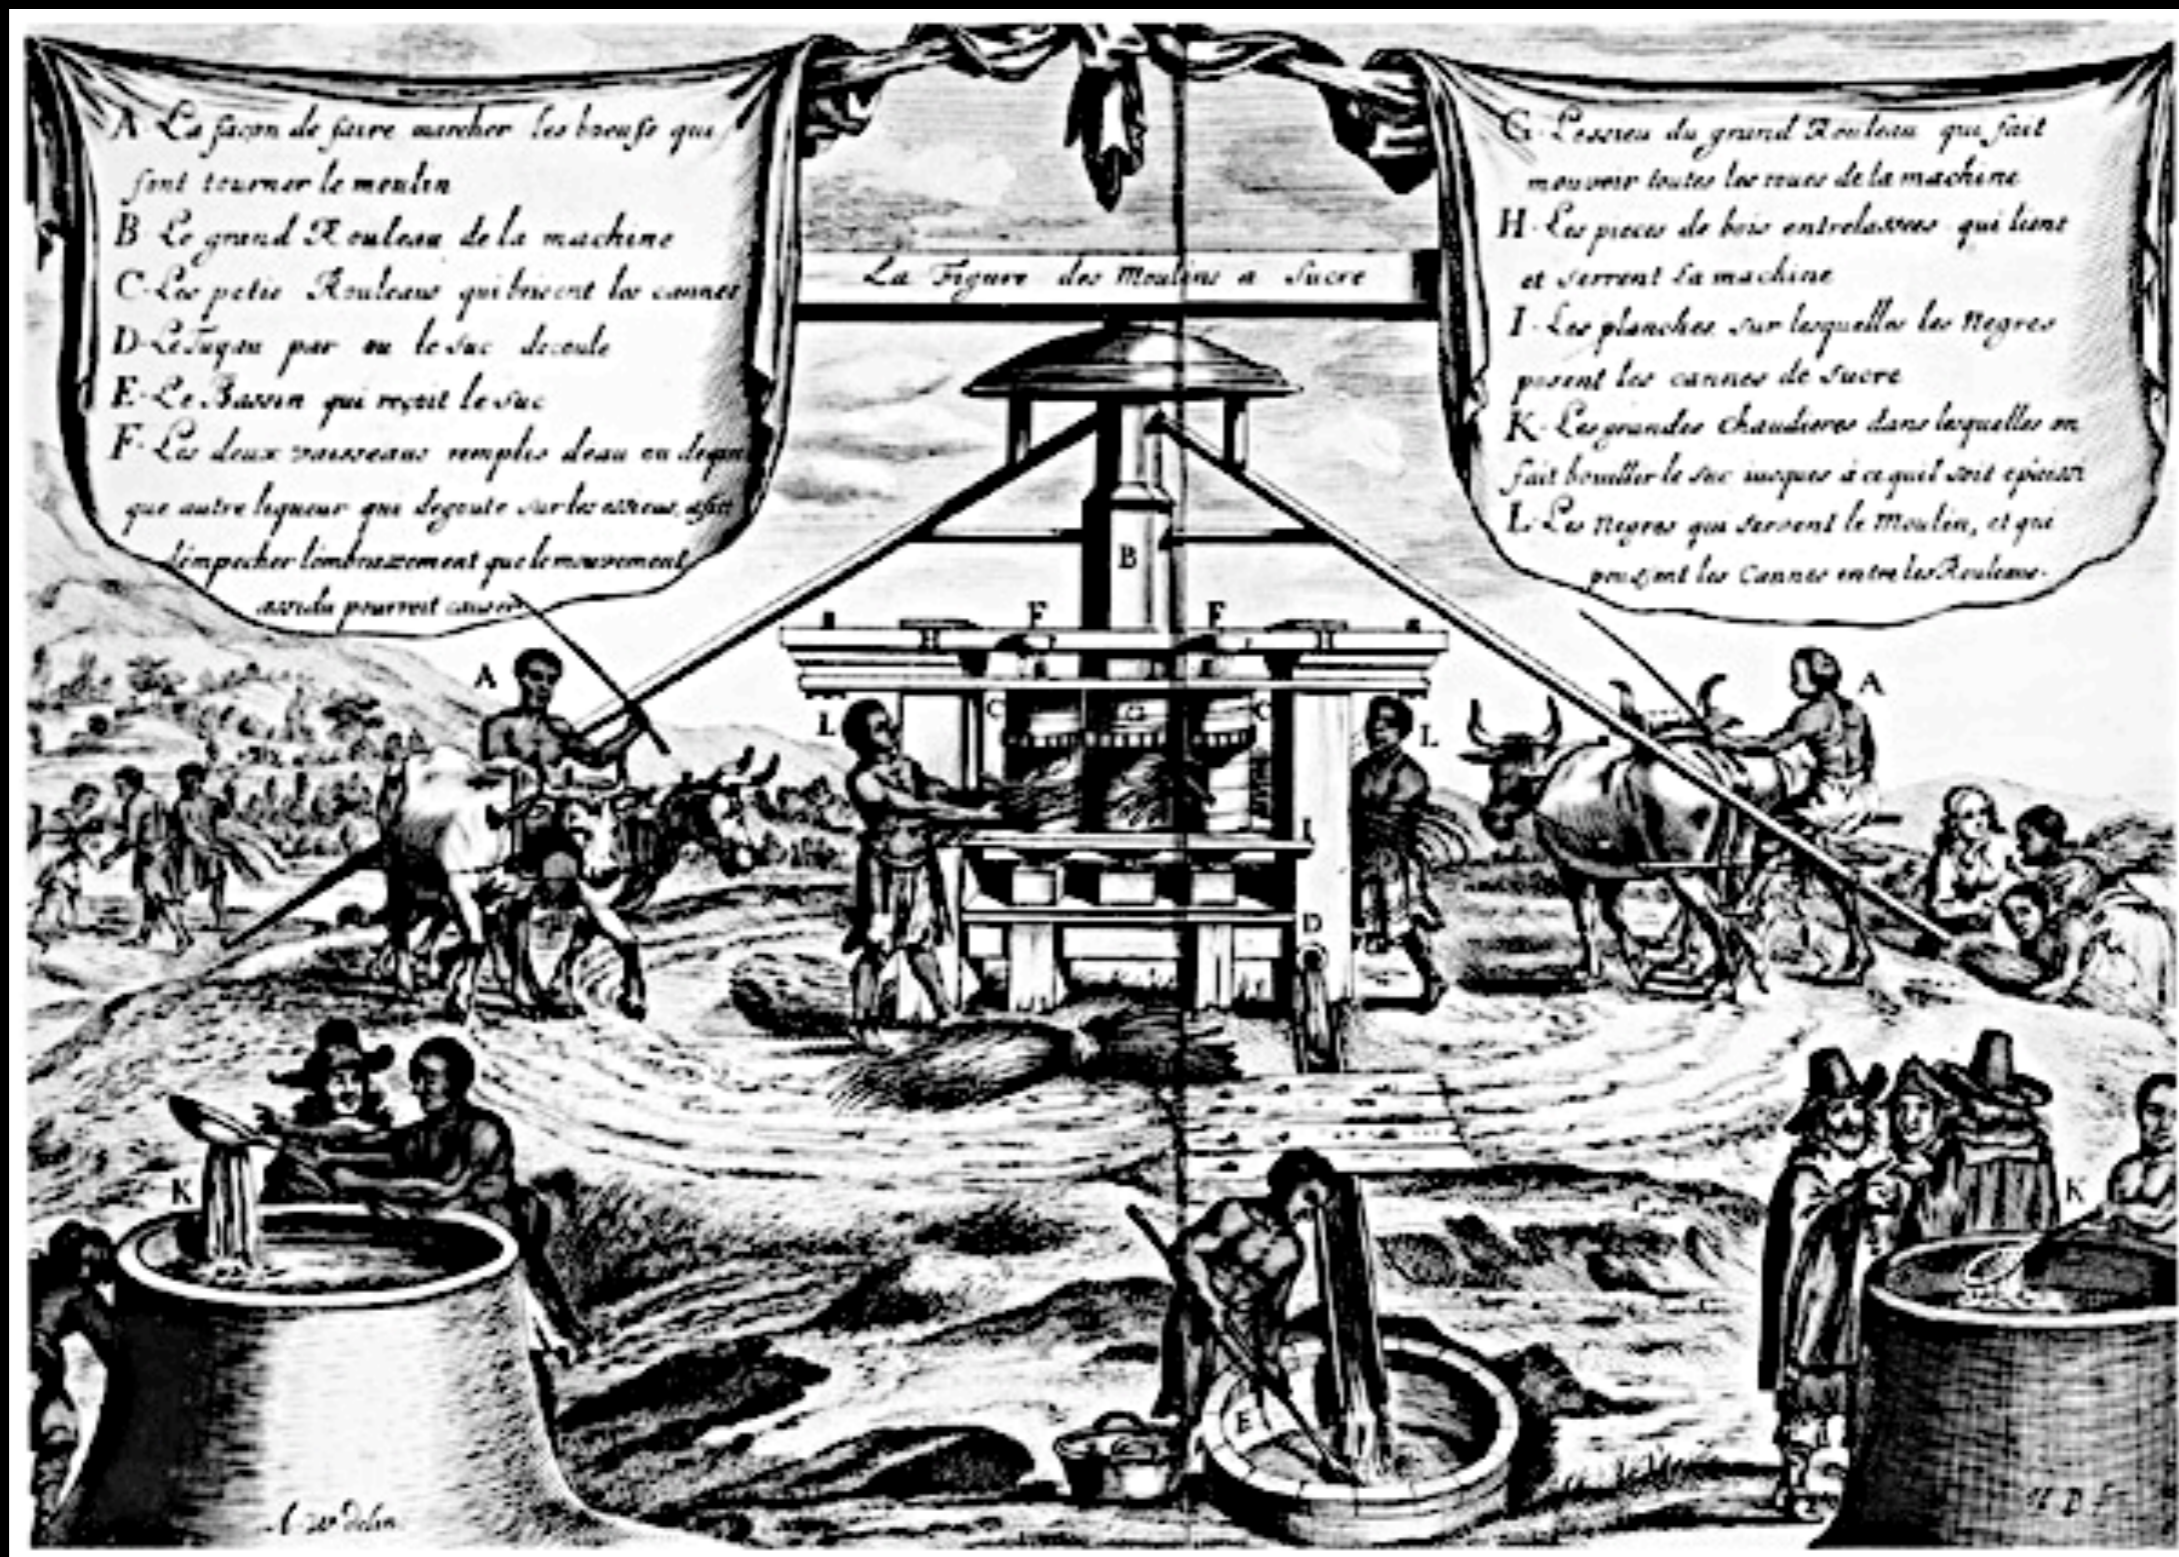 A · La façon de faire marcher les boeufs qui
font tourner le moulin
B · Le grand Rouleau de la machine
C · Les petis Rouleaus qui brisent les cannes
D · Le Tuyau par ou le suc decoule
E · Le Bassin qui reçoit le suc
F · Les deux vaisseaus remplis d'eau ou de quel
que autre liqueur qui degoute sur les essieus, afin
d'empecher l'embrazement que le mouvement
assidu pourroit causer
La Figure des Moulins a Sucre
G · L'essieu du grand Rouleau qui fait
mouvoir toutes les roues de la machine
H · Les pieces de bois entrelassees qui lient
et serrent la machine
I · Les planches sur lesquelles les Negres
posent les cannes de sucre
K · Les grandes Chaudieres dans lesquelles on
fait bouillir le suc iusques à ce quil soit epaissi
L · Les Negres qui servent le Moulin, et qui
poussent les Cannes entre les Rouleaus.
B
F F
A A
L C G C L
I
D
K K
E
delin